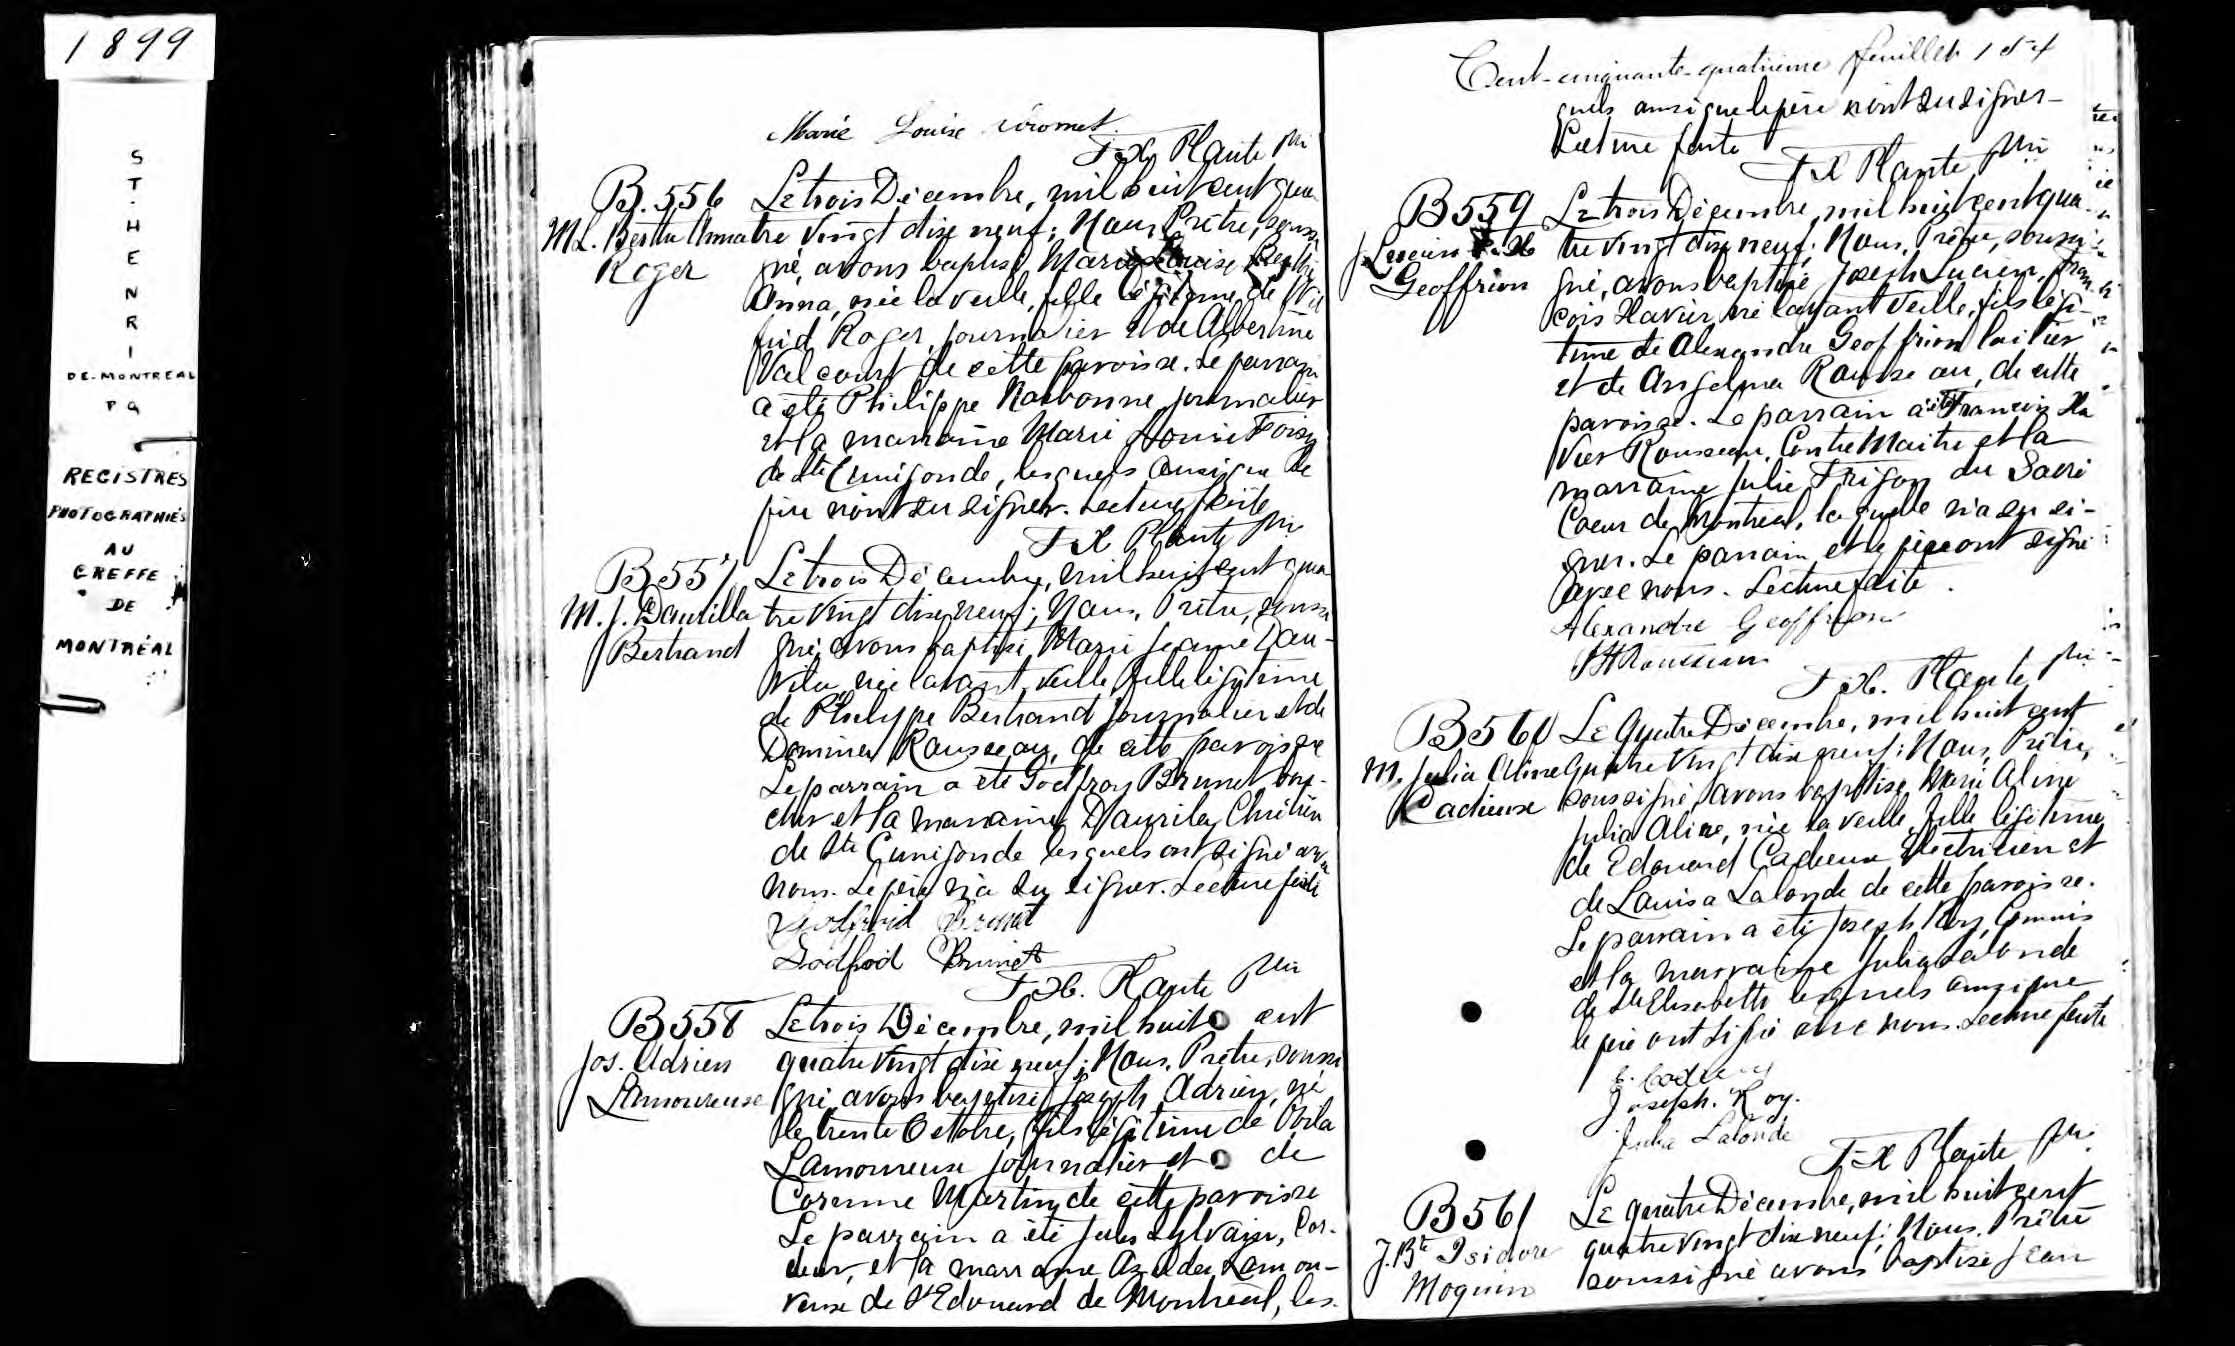 1899
ST. HENRI
DE-MONTREAL
P Q
REGISTRES
PHOTOGRAPHIÉS
AU
GREFFE
DE
MONTRÉAL
Marie Louise
F X Plante Ptr
B. 556
M.L. Bertha Anna
Roger
Le trois Décembre, mil huit cent qua
tre vingt dix neuf; Nous, Prêtre, soussi
gné, avons baptisé Marie Louise Bertha
Anna, née la veille, fille légitime de Wil
frid Roger, journalier et de Albertine
Valcourt de cette paroisse. Le parrain
a été Philippe Narbonne, journalier
et la marraine Marie Louise Foisy
de Ste Cunégonde, lesquels ainsi que le
père n'ont su signer. Lecture faite
F X Plante Ptr
B 557
M. J. Dauvilla
Bertrand
Le trois Décembre, mil huit cent qua
tre vingt dix neuf; Nous, Prêtre, soussi
gné, avons baptisé Marie Jeanne Dau-
vila, née l'avant veille, fille légitime
de Philippe Bertrand journalier et de
Domina Rousseau, de cette paroisse
Le parrain a été Godfroy Brunet bou-
cher et la marraine Daurila Chrétien
de Ste Cunégonde lesquels ont signé avec
nous. Le père n'a su signer. Lecture faite
Godfroid Brunet
Godfroid Brunet
F X. Plante Ptr
B 558
Jos. Adrien
Lamoureux
Le trois Décembre, mil huit cent
quatre vingt dix neuf; Nous, Prêtre, soussi
gné, avons baptisé Joseph Adrien, né
le trente Octobre, fils légitime de Ovila
Lamoureux journalier et de
Corinne Martin, de cette paroisse
Le parrain a été Jules Sylvain, Cor-
deur, et la marraine Azilda Lamou-
reux de St Edouard de Montréal, les-
Cent-cinquante-quatrième feuillet 154
quels ainsi que le père n'ont su signer-
Lecture faite
F X Plante Ptr
B 559
J. Lucien F. X
Geoffrion
Le trois Décembre, mil huit cent qua-
tre vingt dix neuf; Nous, Prêtre, soussi-
gné, avons baptisé Joseph Lucien, Fran-
cois Xavier, né l'avant veille, fils légi-
time de Alexandre Geoffrion laitier
et de Anselma Rousseau, de cette
paroisse. Le parrain a été Francois Xa
vier Rousseau, Contre Maitre et la
marraine Julie Frigon du Sacré
Coeur de Montréal, laquelle n'a su si-
gner. Le parrain et le père ont signé
avec nous. Lecture faite.
Alexandre Geoffrion
Rousseau
F X. Plante Ptr
B 560
M. Julia Aline
Cadieux
Le Quatre Décembre, mil huit cent
Quatre vingt dix neuf; Nous, Prêtre,
soussigné, avons baptisé Marie Aline
Julia Aline, née la veille, fille légitime
de Edouard Cadieux Electricien et
de Louisa Lalonde de cette paroisse.
Le parrain a été Joseph Roy, Commis
et la marraine Julia Lalonde
de Ste Elisabeth lesquels ainsi que
le père ont signé avec nous. Lecture faite
E. Cadieux
Joseph. Roy.
Julia Lalonde
F X Plante Ptr
B 561
J. Bte Isidore
Moquin
Le quatre Décembre, mil huit cent
quatre vingt dix neuf; Nous, Prêtre
soussigné avons baptisé Jean